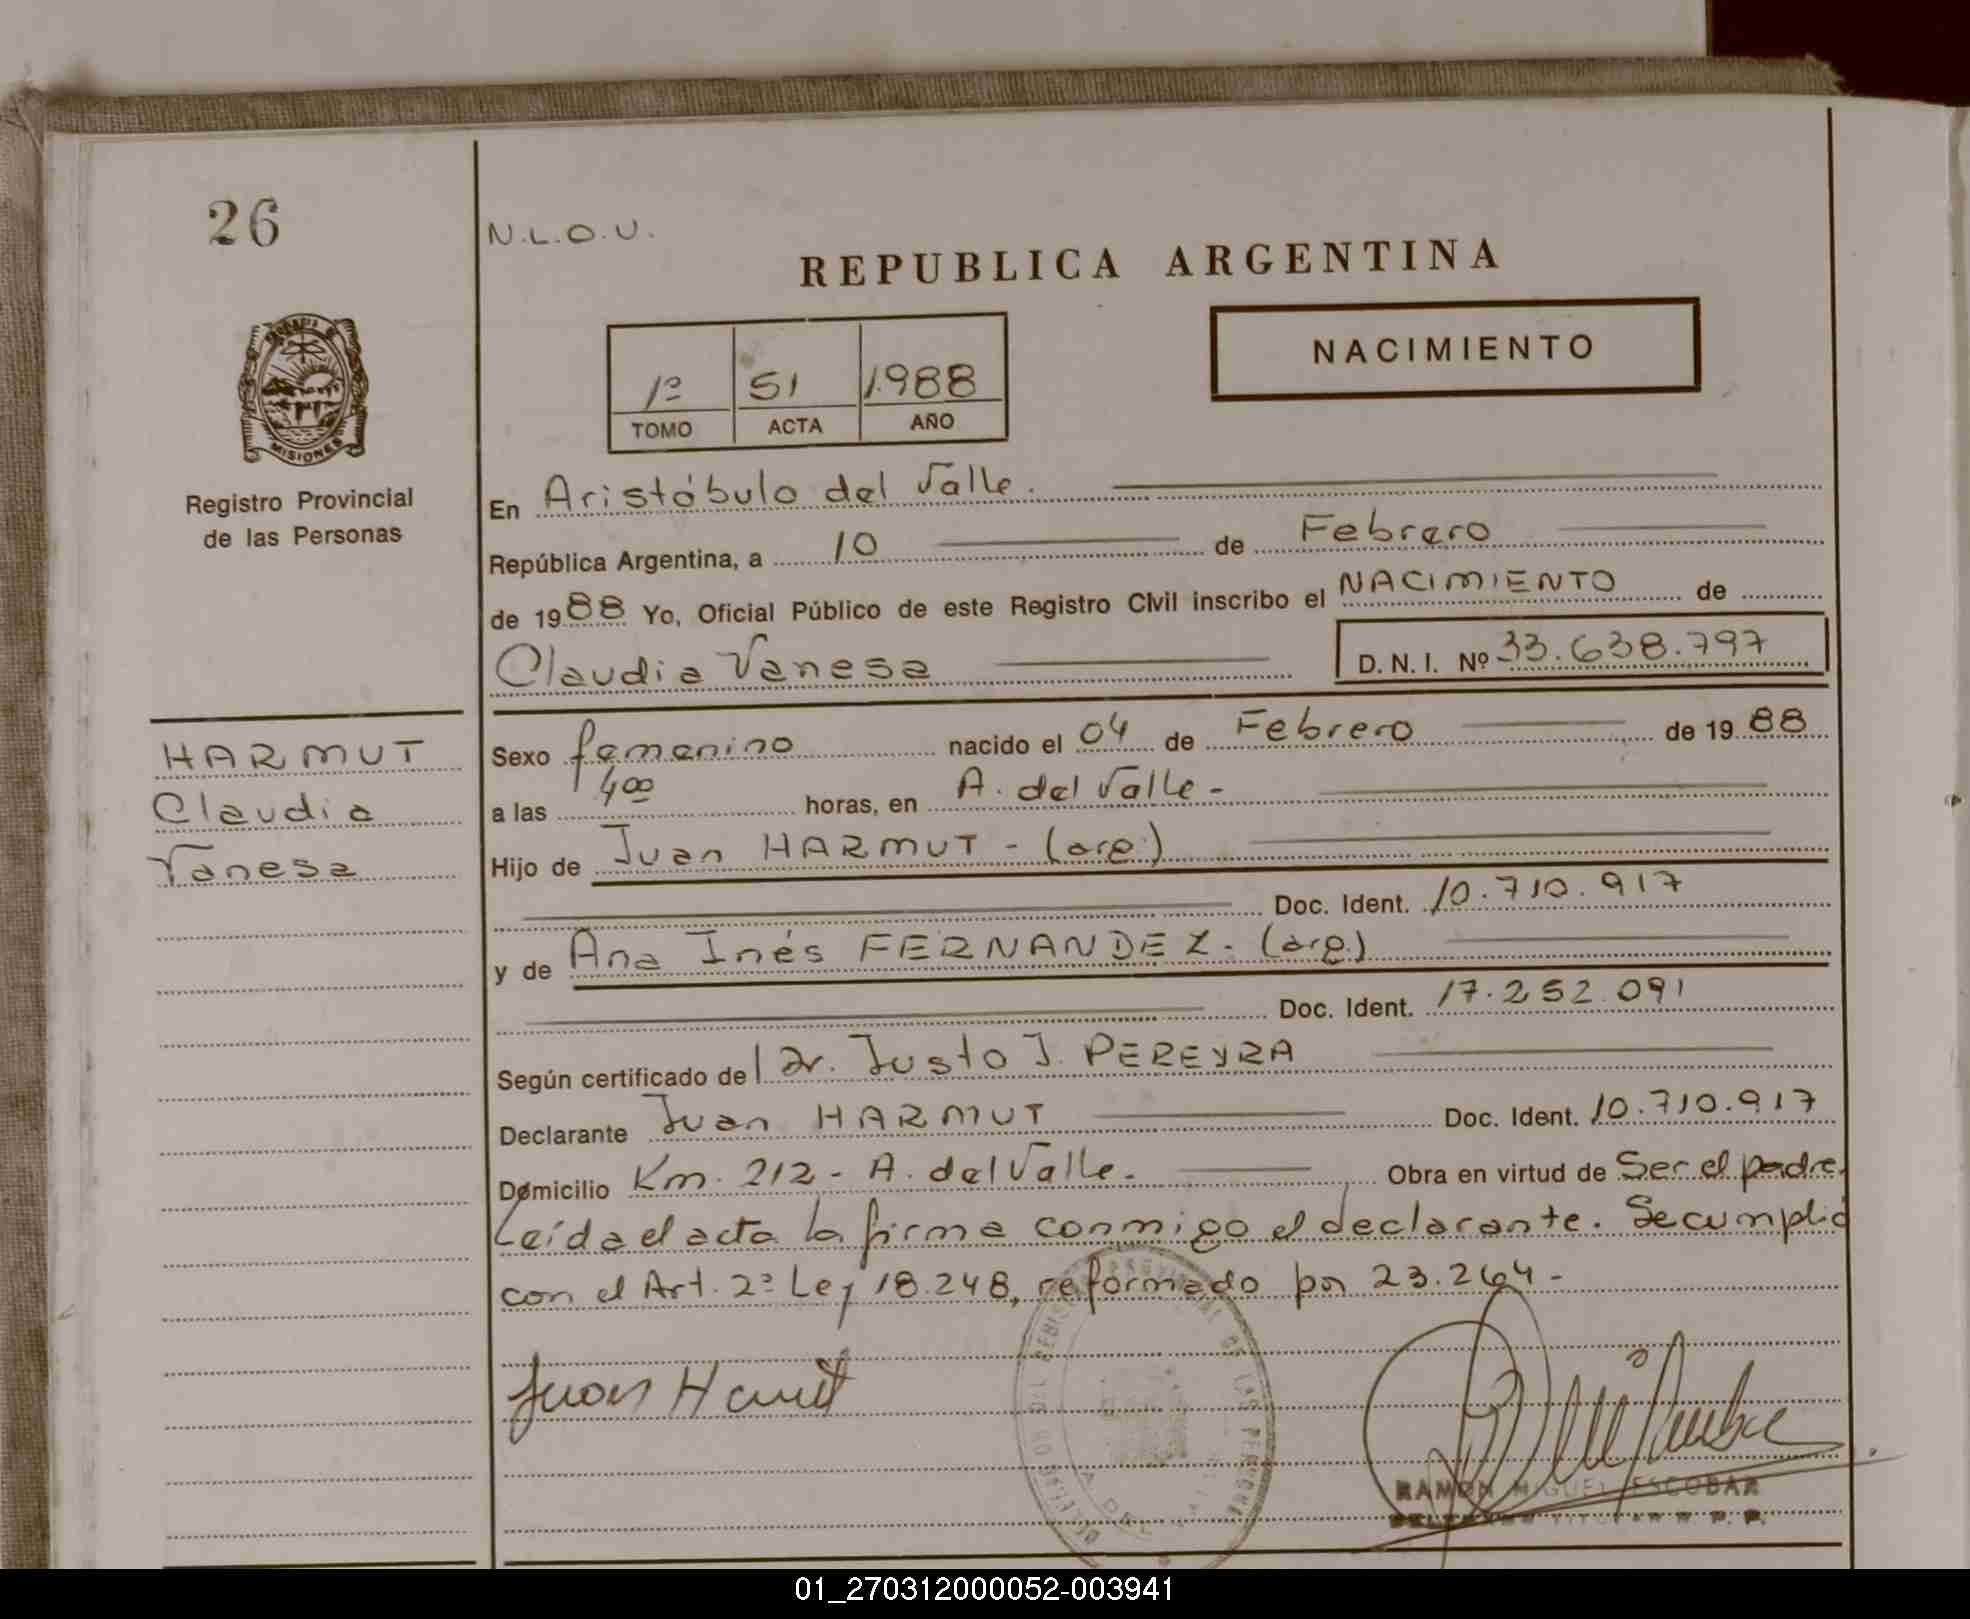 26
N.L.O.U.
REPUBLICA ARGENTINA
NACIMIENTO
1º 51 1.988
TOMO ACTA AÑO
MISIONES
Registro Provincial
de las Personas
En Aristóbulo del Valle.
República Argentina, a 10 de Febrero
de 1988 Yo, Oficial Público de este Registro Civil inscribo el NACIMIENTO de
Claudia Vanesa D. N. I. Nº 33.638.797
HARMUT
Claudia
Vanesa
Sexo femenino nacido el 04 de Febrero de 1988
a las 4oo horas, en A. del Valle-
Hijo de Juan HARMUT - (arg.)
Doc. Ident. 10.710.917
y de Ana Inés FERNANDEZ. (arg.)
Doc. Ident. 17.252.091
Según certificado del Dr. Justo J. PEREYRA
Declarante Juan HARMUT Doc. Ident. 10.710.917
Domicilio Km. 212 - A. del Valle. Obra en virtud de Ser el padre.
Leída el acta la firma conmigo el declarante. Se cumplió
con el Art. 2º Ley 18.248, reformado por 23.264-
Juan Harmut
RAMON MIGUEL ESCOBAR
01_270312000052-003941